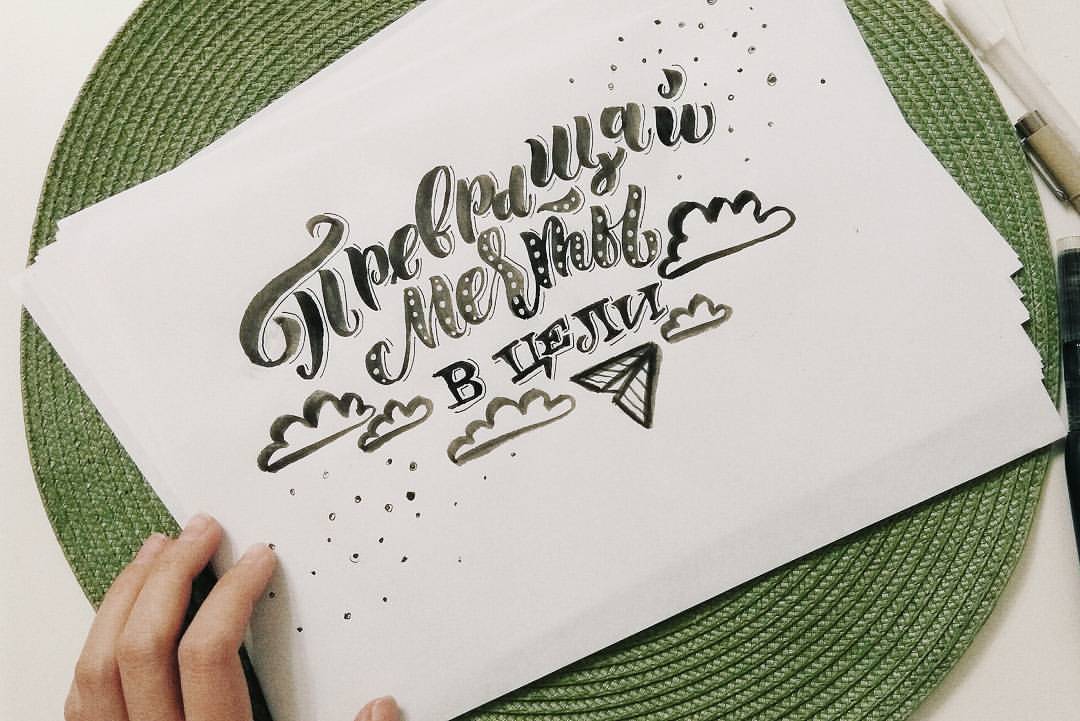 Превращай
мечты
в цели